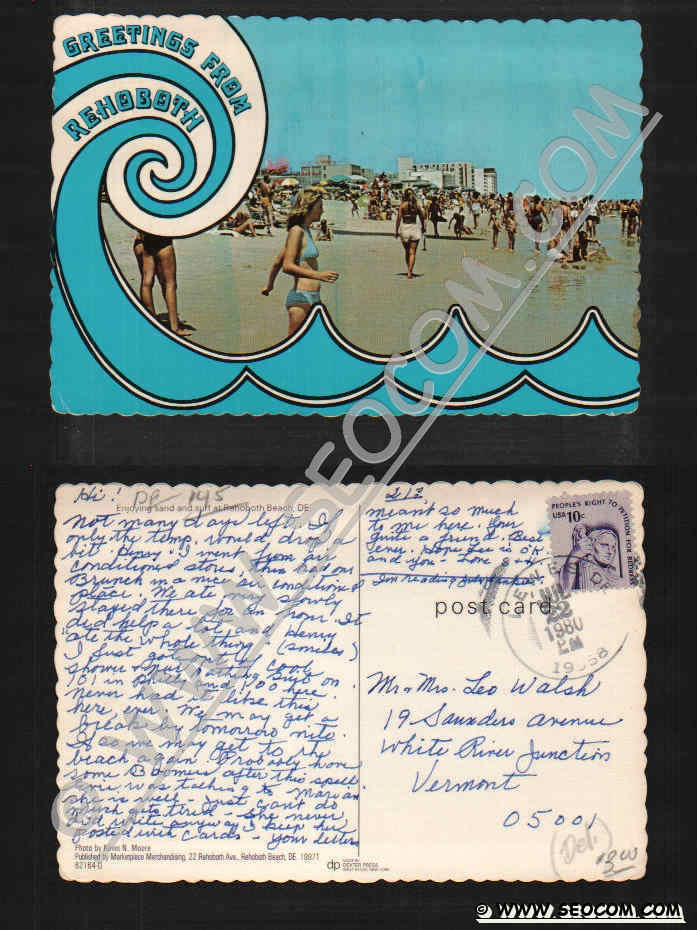 GREETINGS FROM
REHOBOTH
© WWW.SEOCOM.COM
Hi! DE 145
Enjoying sand and surf at Rehoboth Beach, DE.
Not many days left. If
only the temp. would drop a
bit. Henry & I went from air
conditioned stores. Then had our
Brunch in a nice air conditioned
place. We ate very slowly
stayed there for an hour. It
did help a lot and Henry
ate the whole thing. (smiles)
I just got out of
shower & put bathing suit on.
101 in and 100 here.
never had it like this
here ever. We may get a
break by tomorrow nite.
If so we may get to the
beach again. Probably have
some Boomers after this spell.
me was talking to Marian
she is well - Just can't do
much gets tired - She never
did write anyway. I keep her
posted with cards - Your letters
Photo by Karen N. Moore
Published by Marketplace Merchandising, 22 Rehoboth Ave., Rehoboth Beach, DE. 19971
62164-D
dp
DEXTER PRESS
WEST NYACK, NEW YORK
212
meant so much
to me here. Your
quite a friend. Best
ever. Hope Leo is O.K.
and you. Love
I'm reading
post card
PEOPLE'S RIGHT TO PETITION FOR REDRESS
USA 10c
LEWES, DE
JUL
22
1980
PM
19958
Mr & Mrs. Leo Walsh
19 Saunders Avenue
White River Junction
Vermont
05001
Del.
3.00
© WWW.SEOCOM.COM